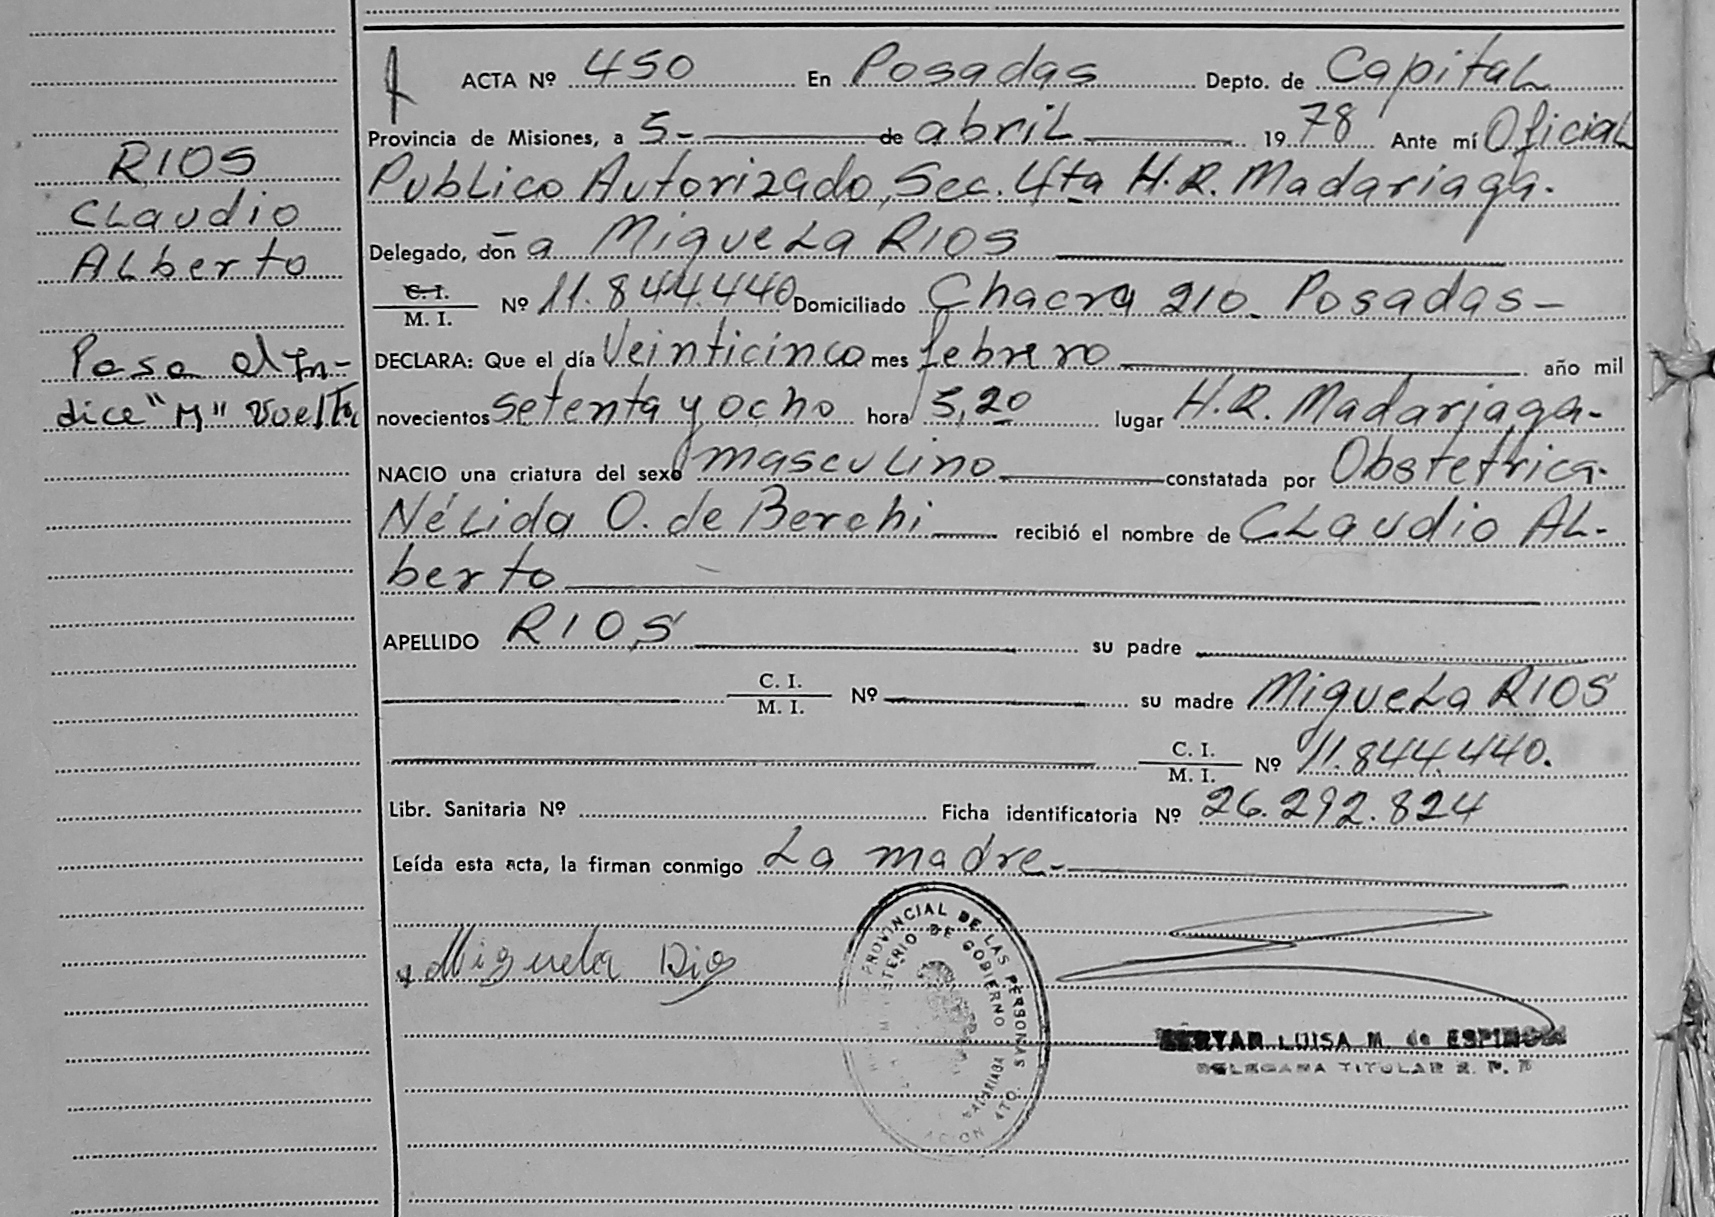 RIOS
CLaudio
ALberto
Pasa al In-
dice "M" Vuelta
ACTA Nº 450 En Posadas Depto. de CapitaL
Provincia de Misiones, a 5- de abriL 1978 Ante mí OficiaL
PubLico Autorizado, Sec. 4ta H.R. Madariaga.
Delegado, don a MigueLa RIOS
C. I. / M. I. Nº 11.844.440 Domiciliado Chacra 210. Posadas-
DECLARA: Que el día Veinticinco mes febrero año mil
novecientos setenta y ocho hora 5,20 lugar H.R. Madariaga-
NACIO una criatura del sexo mascuLino constatada por Obstetrica-
NéLida O. de Berchi recibió el nombre de CLaudio AL-
berto
APELLIDO RIOS su padre
C. I. / M. I. Nº su madre MigueLa RIOS
C. I. / M. I. Nº 11.844.440.
Libr. Sanitaria Nº Ficha identificatoria Nº 26.292.824
Leída esta acta, la firman conmigo La madre-
Miguela Rios
PROVINCIAL DE LAS PERSONAS
MINISTERIO DE GOBIERNO
LUISA M. de ESPINOLA
DELEGADA TITULAR R. P. P